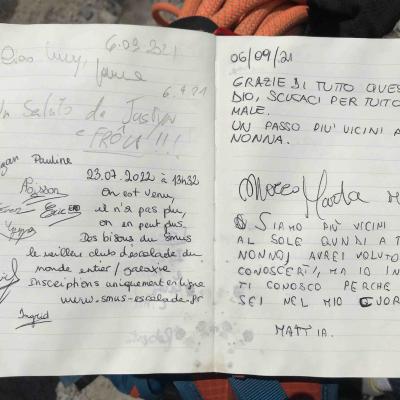 6.09.2021
Ciao
6.9.21
Un Saluto da
e FRÔLA!!!
Pauline
23.07.2022 à 13h32
On est venu,
il n'a pas plu,
on en peut plus.
Dos bisous du Smus
le meilleur clubs d'escalade du
monde entier / galaxie
Inscriptions uniquement en ligne
www.smus-escalade.fr
Ingrid
06/09/21
GRAZIE DI TUTTO QUESTO
DIO, SCUSACI PER TUTTO
MALE.
UN PASSO PIU' VICINI A
NONNA.
Marco Marta M
SIAMO PIÙ VICINI
AL SOLE QUINDI A T
NONNO, AVREI VOLUTO
CONOSCERTI, MA IO IN
TI CONOSCO PERCHE
SEI NEL MIO CUOR
MATTIA.